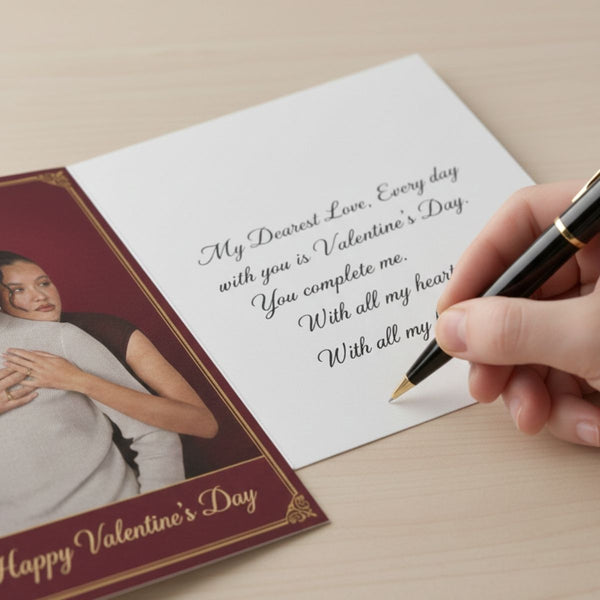 My Dearest Love, Every day
with you is Valentine's Day.
You complete me.
With all my heart
With all my
Happy Valentine's Day